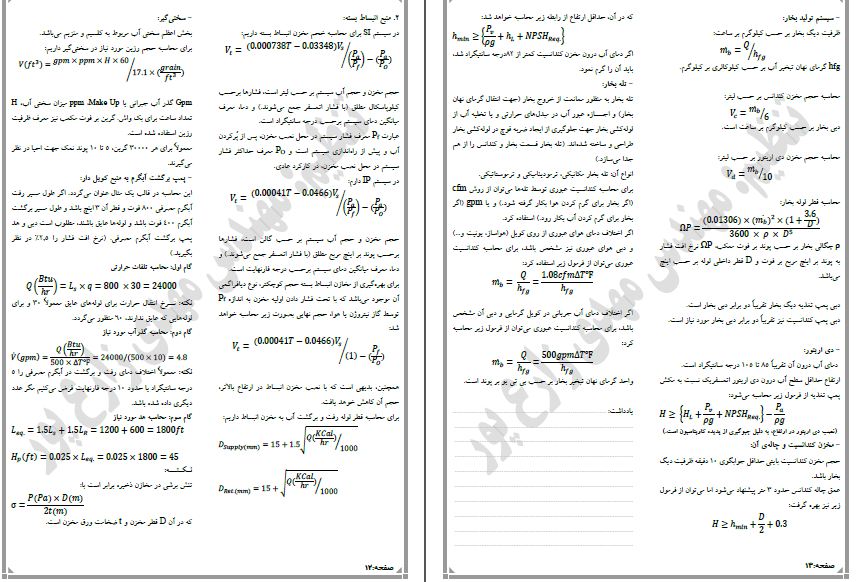 – سیستم تولید بخار:
ظرفیت دیگ بخار بر حسب کیلوگرم بر ساعت:
ṁb = Q/hfg
hfg گرمای نهان تبخیر آب بر حسب کیلوکالری بر کیلوگرم.
محاسبه حجم مخزن کندانس بر حسب لیتر:
Vc = ṁb/6
دبی بخار بر حسب کیلوگرم بر ساعت است.
محاسبه حجم مخزن دی اریتور بر حسب لیتر:
Vd = ṁb/10
محاسبه قطر لوله بخار:
ΩP = (0.01306) × (ṁb)² × (1 + 3.6/D) / 3600 × ρ × D⁵
ρ چگالی بخار بر حسب پوند بر فوت مکعب، ΩP نرخ افت فشار
به پوند بر اینچ مربع بر فوت و D قطر داخلی لوله بر حسب اینچ
می‌باشد.
دبی پمپ تغذیه دیگ بخار تقریباً دو برابر دبی بخار است.
دبی پمپ کندانسیت نیز تقریباً دو برابر دبی بخار مورد نیاز است.
– دی اریتور:
دمای آب درون آن تقریباً ۸۵ تا ۱۰۵ درجه سانتیگراد است.
ارتفاع حداقل سطح آب درون دی اریتور اتمسفریک نسبت به مکش
پمپ تغذیه از فرمول زیر محاسبه می‌شود:
H ≥ {HL + Pv/ρg + NPSHReq.} − Pa/ρg
(نصب دی اریتور در ارتفاع، به دلیل جلوگیری از پدیده کاویتاسیون است.)
– مخزن کندانسیت و چاله‌ی آن:
حجم مخزن کندانسیت بایتی حداقل جوابگوی ۱۰ دقیقه ظرفیت دیگ
بخار باشد.
عمق چاله کندانس حدود ۳ متر پیشنهاد می‌شود اما می‌توان از فرمول
زیر نیز بهره گرفت:
H ≥ hmin + D/2 + 0.3
صفحه:۱۳
که در آن، حداقل ارتفاع از رابطه زیر محاسبه خواهد شد:
hmin ≥ {Pv/ρg + hL + NPSHReq.}
اگر دمای آب درون مخزن کندانسیت کمتر از ۸۲درجه سانتیگراد شد،
باید آن را گرم نمود.
– تله بخار:
تله بخار به منظور ممانعت از خروج بخار (جهت انتقال گرمای نهان
بخار) و اجسازه عبور آب در مبدل‌های حرارتی و یا تخلیه آب از
لوله‌کشی بخار جهت جلوگیری از ایجاد ضربه قوچ در لوله‌کشی بخار
طراحی و ساخته شده‌اند. (تله بخار قسمت بخار و کندانس را از هم
جدا می‌سازد.)
انواع آن: تله بخار مکانیکی، ترمودینامیکی و ترموستاتیکی.
برای محاسبه کندانسیت عبوری توسط تله‌ها می‌توان از روش cfm
(اگر بخار برای گرم کردن هوا بکار گرفته شود.) و یا gpm (اگر
بخار برای گرم کردن آب بکار رود.) استفاده کرد.
اگر اختلاف دمای هوای عبوری از روی کویل (هواساز، یونیت و...)
و دبی هوای عبوری نیز مشخص باشد، برای محاسبه کندانسیت
عبوری می‌توان از فرمول زیر استفاده کرد:
ṁb = Q/hfg = 1.08cfmΔT°F/hfg
اگر اختلاف دمای آب جریانی در کویل گرمایی و دبی آن مشخص
باشد، برای محاسبه کندانسیت عبوری می‌توان از فرمول زیر محاسبه
کرد:
ṁb = Q/hfg = 500gpmΔT°F/hfg
واحد گرمای نهان تبخیر بخار بر حسب بی تی یو بر پوند است.
یادداشت:
۲. منبع انبساط بسته:
در سیستم SI برای محاسبه حجم مخزن انبساط بسته داریم:
Vt = (0.000738T − 0.03348)Vs / (Pa/Pf) − (Pa/PO)
حجم مخزن و حجم آب سیستم بر حسب لیتر است، فشارها برحسب
کیلوپاسکال مطلق (با فشار اتمسفر جمع می‌شوند.) و دما، معرف
میانگین دمای سیستم برحسب درجه سانتیگراد است.
عبارت Pf معرف فشار سیستم در محل نصب مخزن، پس از پُرکردن
آب و پیش از راه‌اندازی سیستم است و PO معرف حداکثر فشار
سیستم در محل نصب مخزن، در کارکرد عادی.
در سیستم IP داریم:
Vt = (0.00041T − 0.0466)Vs / (Pa/Pf) − (Pa/PO)
حجم مخزن و حجم آب سیستم بر حسب گالن است، فشارها
برحسب پوند بر اینچ مربع مطلق (با فشار اتمسفر جمع می‌شوند.) و
دما، معرف میانگین دمای سیستم برحسب درجه فارنهایت است.
برای بهره‌گیری از مخازن انبساط بسته حجم کوچکتر، نوع دیافراگمی
آن موجود می‌باشد که با تحت فشار دادن اولیه مخزن به اندازه Pf
توسط گاز نیتروژن یا هوا، حجم نهایی بصورت زیر محاسبه خواهد
شد:
Vt = (0.00041T − 0.0466)Vs / (1) − (Pf/PO)
همچنین، بدیهی است که با نصب مخزن انبساط در ارتفاع بالاتر،
حجم آن کاهش خواهد یافت.
برای محاسبه قطر لوله رفت و برگشت آب به مخزن انبساط داریم:
DSupply(mm) = 15 + 1.5√Q(KCal/hr)/1000
DRet.(mm) = 15 + √Q(KCal/hr)/1000
– سختی‌گیر:
بخش اعظم سختی آب مربوط به کلسیم و منیزیم می‌باشد.
برای محاسبه حجم رزین مورد نیاز در سختی‌گیر داریم:
V(ft³) = gpm × ppm × H × 60 / 17.1 × (grain./ft³)
Gpm گذر آب جبرانی یا Make Up، ppm میزان سختی آب، H
تعداد ساعت برای یک واش، گرین بر فوت مکعب نیز معرف ظرفیت
رزین استفاده شده است.
معمولاً برای هر ۳۰۰۰۰ گرین، ۵ تا ۱۰ پوند نمک جهت احیا در نظر
می‌گیرند.
– پمپ برگشت آبگرم به منبع کویل دار:
این محاسبه در قالب یک مثال عنوان می‌گردد. اگر طول مسیر رفت
آبگرم مصرفی ۸۰۰ فوت و قطر آن ۳ اینچ باشد و طول مسیر برگشت
آبگرم ۴۰۰ فوت باشد و لوله‌ها عایق باشند، مطلوب است دبی و هد
پمپ برگشت آبگرم مصرفی. (نرخ افت فشار را ۲.۵٪ در نظر
بگیرید.)
گام اول: محاسبه تلفات حرارتی
Q(Btu/hr) = Ls × q = 800 × 30 = 24000
نکته: نسرخ انتقال حرارت برای لوله‌های عایق معمولاً ۳۰ و برای
لوله‌هایی که عایق ندارند، ۶۰ منظور می‌گردد.
گام دوم: محاسبه گذر آب مورد نیاز
V̇(gpm) = Q(Btu/hr) / 500 × ΔT°F = 24000/(500 × 10) = 4.8
نکته: معمولاً اختلاف دمای رفت و برگشت در آبگرم مصرفی را ۵
درجه سانتیگراد یا حدود ۱۰ درجه فارنهایت فرض می‌کنیم مگر عدد
دیگری داده شده باشد.
گام سوم: محاسبه هد مورد نیاز
Leq. = 1.5Ls + 1.5LR = 1200 + 600 = 1800ft
Hp(ft) = 0.025 × Leq. = 0.025 × 1800 = 45
نکته:
تنش برشی در مخازن ذخیره برابر است با:
σ = P(Pa) × D(m) / 2t(m)
که در آن D قطر مخزن و t ضخامت ورق مخزن است.
صفحه:۱۲